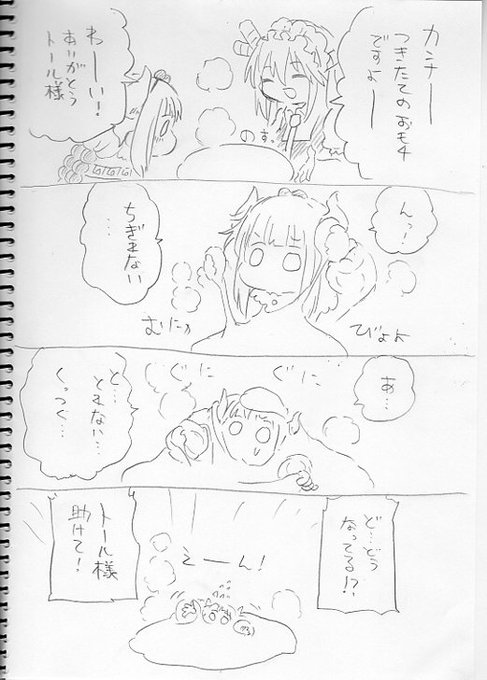 カンナー
つきたてのおもち
ですよー
わーい!
ありがとう
トール様
のす。
んっ!
ちぎれない
…。
むにた
びよよ
あ…
ぐに
ぐに
と…
とれない…
くっつく…
ど…どう
なってる!?
えーん!
トール様
助けて!